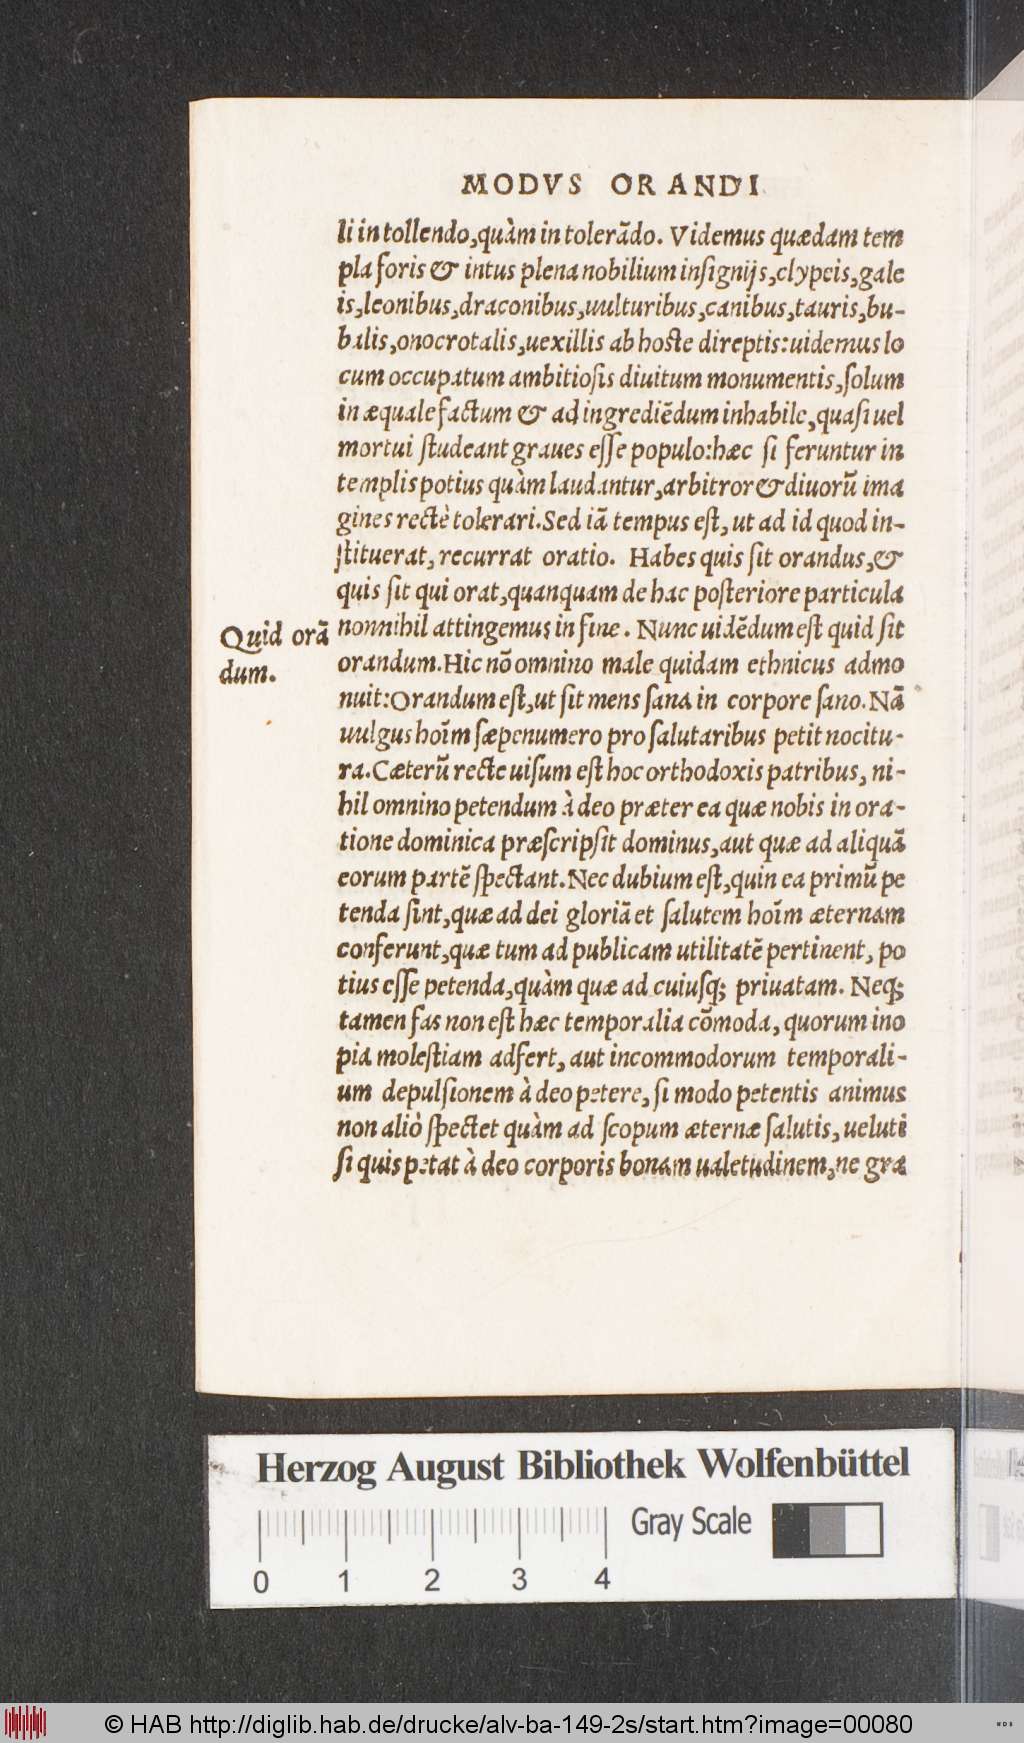 MODVS ORANDI
li in tollendo, quàm in tolerãdo. Videmus quædam tem
pla foris & intus plena nobilium insignijs, clypeis, gale
is, leonibus, draconibus, uulturibus, canibus, tauris, bu-
balis, onocrotalis, uexillis ab hoste direptis: uidemus lo
cum occupatum ambitiosis diuitum monumentis, solum
inæquale factum & ad ingrediẽdum inhabile, quasi uel
mortui studeant graues esse populo: hæc si feruntur in
templis potius quàm laudantur, arbitror & diuorũ ima
gines rectè tolerari. Sed iã tempus est, ut ad id quod in-
stituerat, recurrat oratio. Habes quis sit orandus, &
quis sit qui orat, quanquam de hac posteriore particula
nonnihil attingemus in fine. Nunc uidẽdum est quid sit
Quid orã
dum.
orandum. Hic nõ omnino male quidam ethnicus admo
nuit: Orandum est, ut sit mens sana in corpore sano. Nã
uulgus hoĩm sæpenumero pro salutaribus petit nocitu-
ra. Cæterũ recte uisum est hoc orthodoxis patribus, ni-
hil omnino petendum à deo præter ea quæ nobis in ora-
tione dominica præscripsit dominus, aut quæ ad aliquã
eorum partẽ spectant. Nec dubium est, quin ea primũ pe
tenda sint, quæ ad dei gloriã et salutem hoĩm æternam
conferunt, quæ tum ad publicam utilitatẽ pertinent, po
tius esse petenda, quàm quæ ad cuiusq; priuatam. Neq;
tamen fas non est hæc temporalia cõmoda, quorum ino
pia molestiam adfert, aut incommodorum temporali-
um depulsionem à deo petere, si modo petentis animus
non aliò spectet quàm ad scopum æternæ salutis, ueluti
si quis petat à deo corporis bonam ualetudinem, ne gra
Herzog August Bibliothek Wolfenbüttel
Gray Scale
0 1 2 3 4
© HAB http://diglib.hab.de/drucke/alv-ba-149-2s/start.htm?image=00080